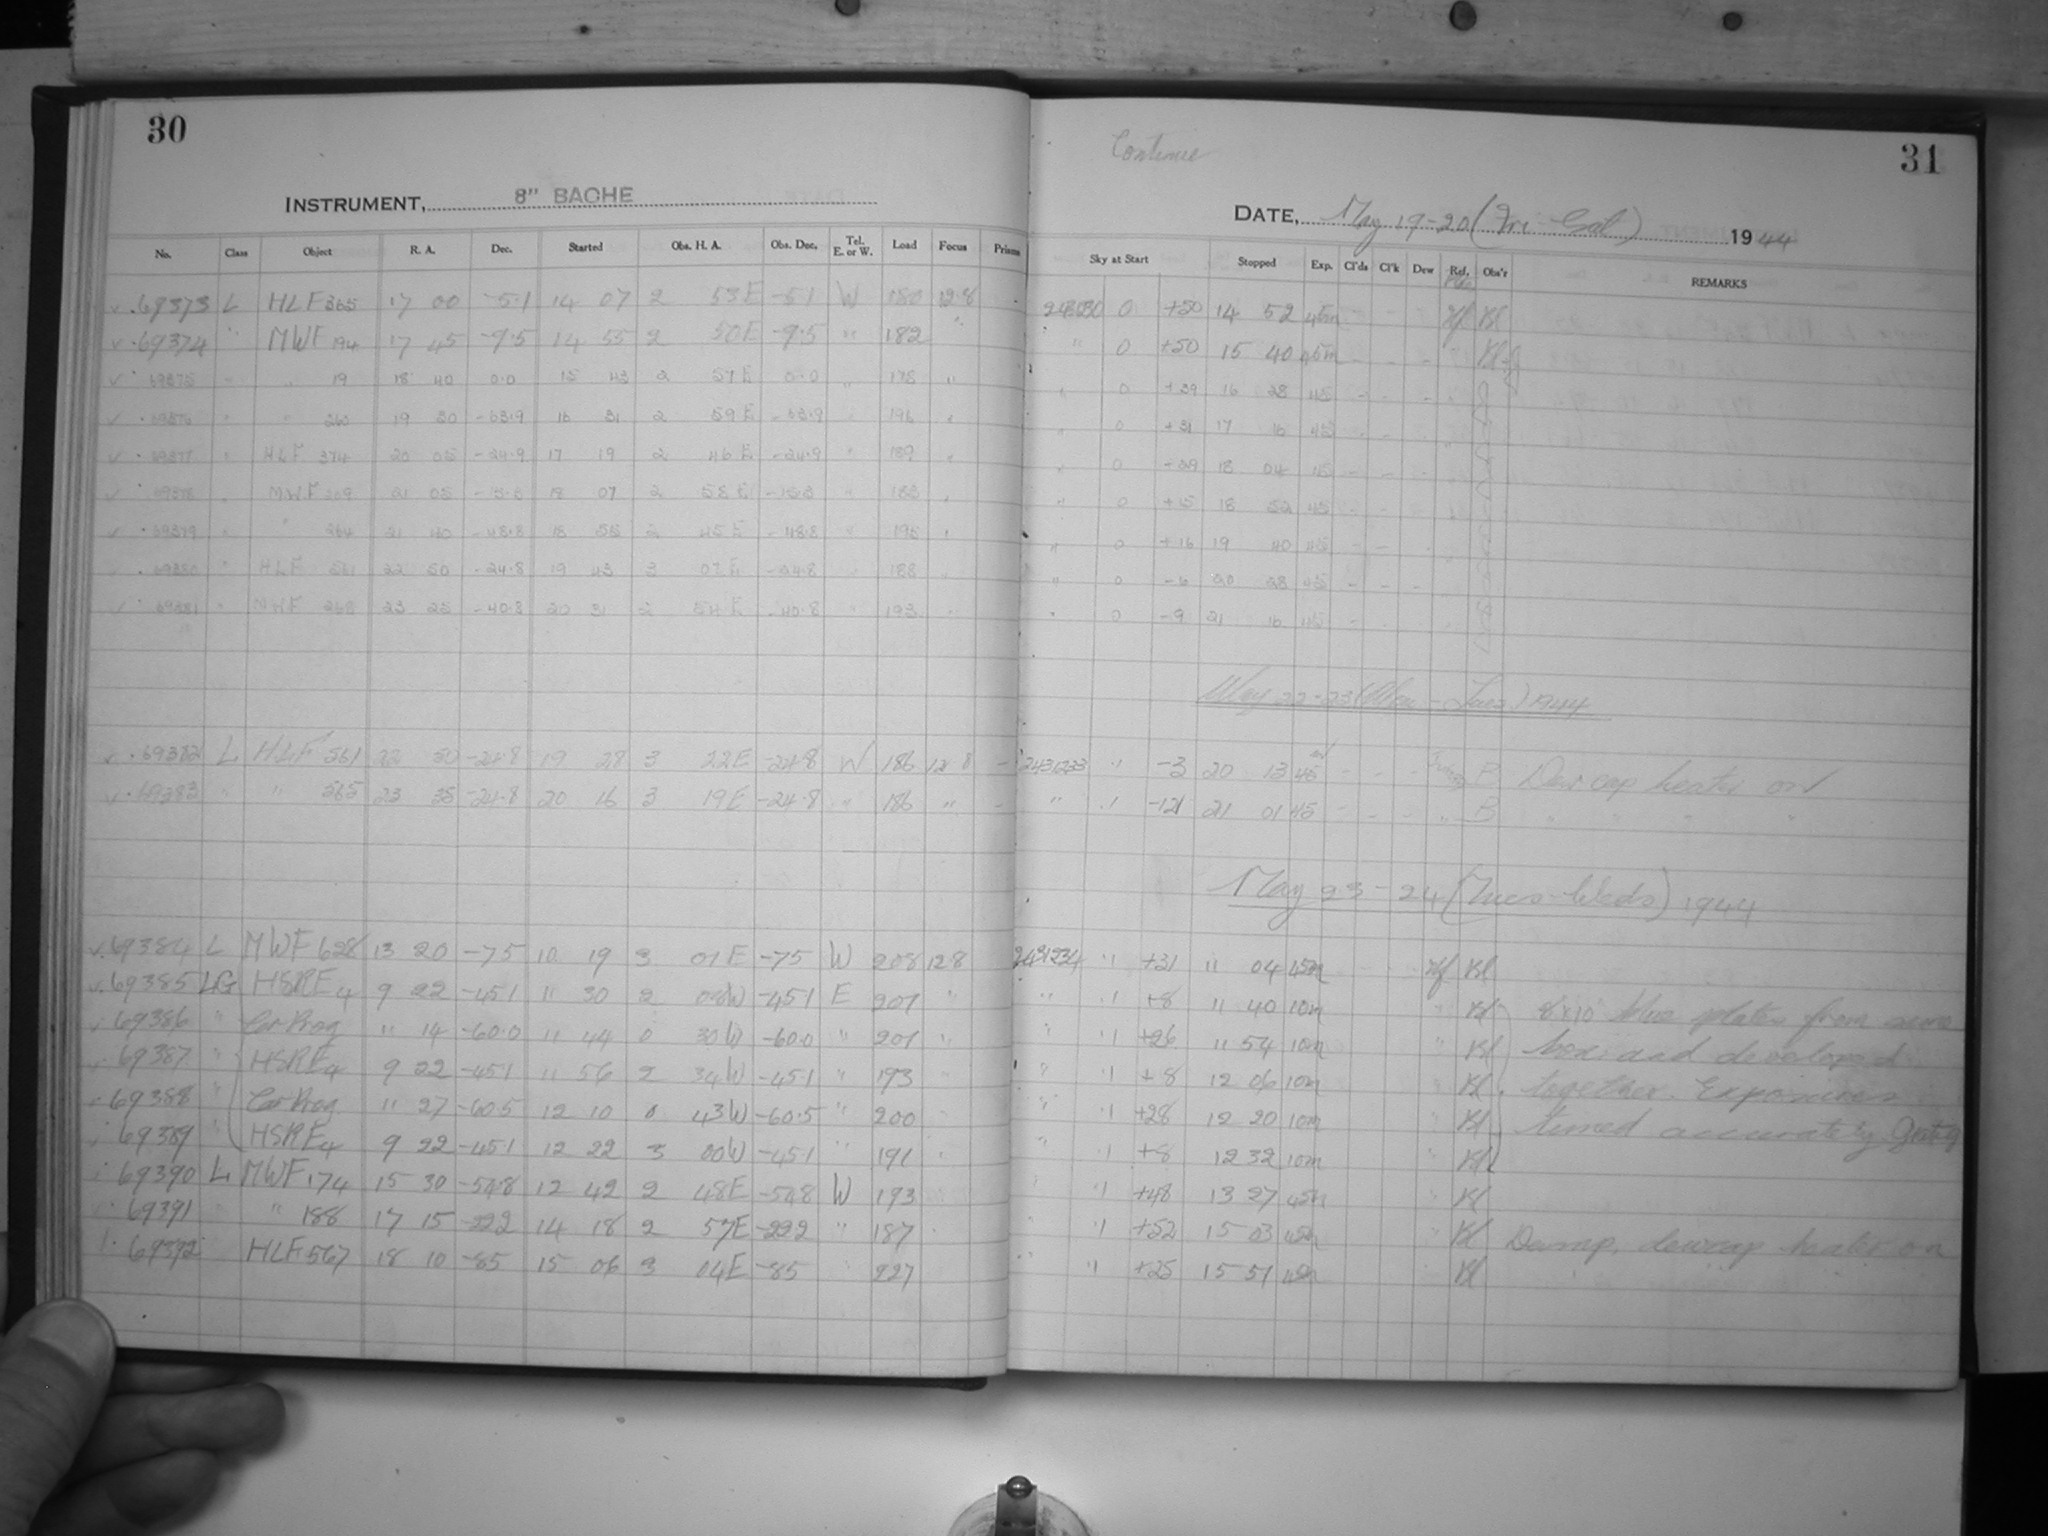 30
INSTRUMENT, 8" BACHE
No. Class Object R. A. Dec. Started Obs. H. A. Obs. Dec. Tel. E. or W. Load Focus Prisms
69373 L HLF 365 17 00 -51 14 07 2 53E -51 W 180 12.8
69374 " MWF 194 17 45 -9.5 14 55 2 50E -9.5 " 182 "
69375 " " 19 18 40 0.0 15 43 2 57E 0.0 " 178 "
69376 " " 260 19 30 16 31 2 59E " 196 "
69377 " HLF 374 20 05 -24.9 17 19 2 46E -24.9 " 189 "
69378 " MWF 209 21 05 18 07 2 53E " 183 "
69379 " " 264 21 40 -48.8 18 55 2 45E -48.8 " 195 "
69380 " HLF 561 22 50 -24.8 19 43 3 07E -24.8 188
69381 " MWF 268 23 25 -40.8 20 31 2 54E -40.8 " 193
69382 L HLF 561 22 50 -24.8 19 28 3 22E -24.8 W 186 12 8 -
69383 " " 565 23 35 -24.8 20 16 3 19E -24.8 " 186 " -
69384 L MWF 628 13 20 -75 10 19 3 01E -75 W 208 128
69385 LG HSRE4 9 22 -451 11 30 2 08W -451 E 207 "
69386 " Car Prog 11 14 -60.0 11 44 0 30W -600 " 201 "
69387 " HSRE4 9 22 -451 11 56 2 34W -451 " 193
69388 " Car Prog 11 27 -60.5 12 10 0 43W -60.5 " 200
69389 " HSRE4 9 22 -451 12 22 3 00W -451 " 191
69390 L MWF 174 15 30 -548 12 42 2 48E -548 W 193
69391 " 188 17 15 -222 14 18 2 57E -222 " 187
69392 HLF 567 18 10 -85 15 06 3 04E -85 " 227
Continue
31
DATE, May 19-20 (Fri-Sat) 1944
Sky at Start Stopped Exp. Cl'ds Cl'k Dew Rel. Obs'r REMARKS
0 +50 14 52 45m - - Hf Kl
" 0 +50 15 40 45m - - -
" 0 +39 16 28 45 - - -
" 0 +31 17 16 45 - -
" 0 -29 18 04 45 - - -
" 0 +15 18 52 45 - -
" 0 +16 19 40 45 - -
" 0 -6 20 28 45 - - -
" 0 -9 21 16 45 -
May 22-23 (Mon-Tues) 1944
2431233 " -3 20 13 45 - - B Dew cap heater on
" " -12 21 01 45 - - - " B " " " "
May 23-24 (Tues-Weds) 1944
2431234 " +31 11 04 45m Hf Kl
" " +8 11 40 10m " Kl 8x10 blue plates from same
" " +26 11 54 10m " Kl box and developed
" " +8 12 06 10m " Kl together. Exposures
" " +28 12 20 10m " Kl timed accurately
" " +8 12 32 10m " Kl
" +48 13 27 45m " Kl
" +52 15 03 45m " Kl Damp, dewcap heater on
" " +25 15 51 45m " Kl